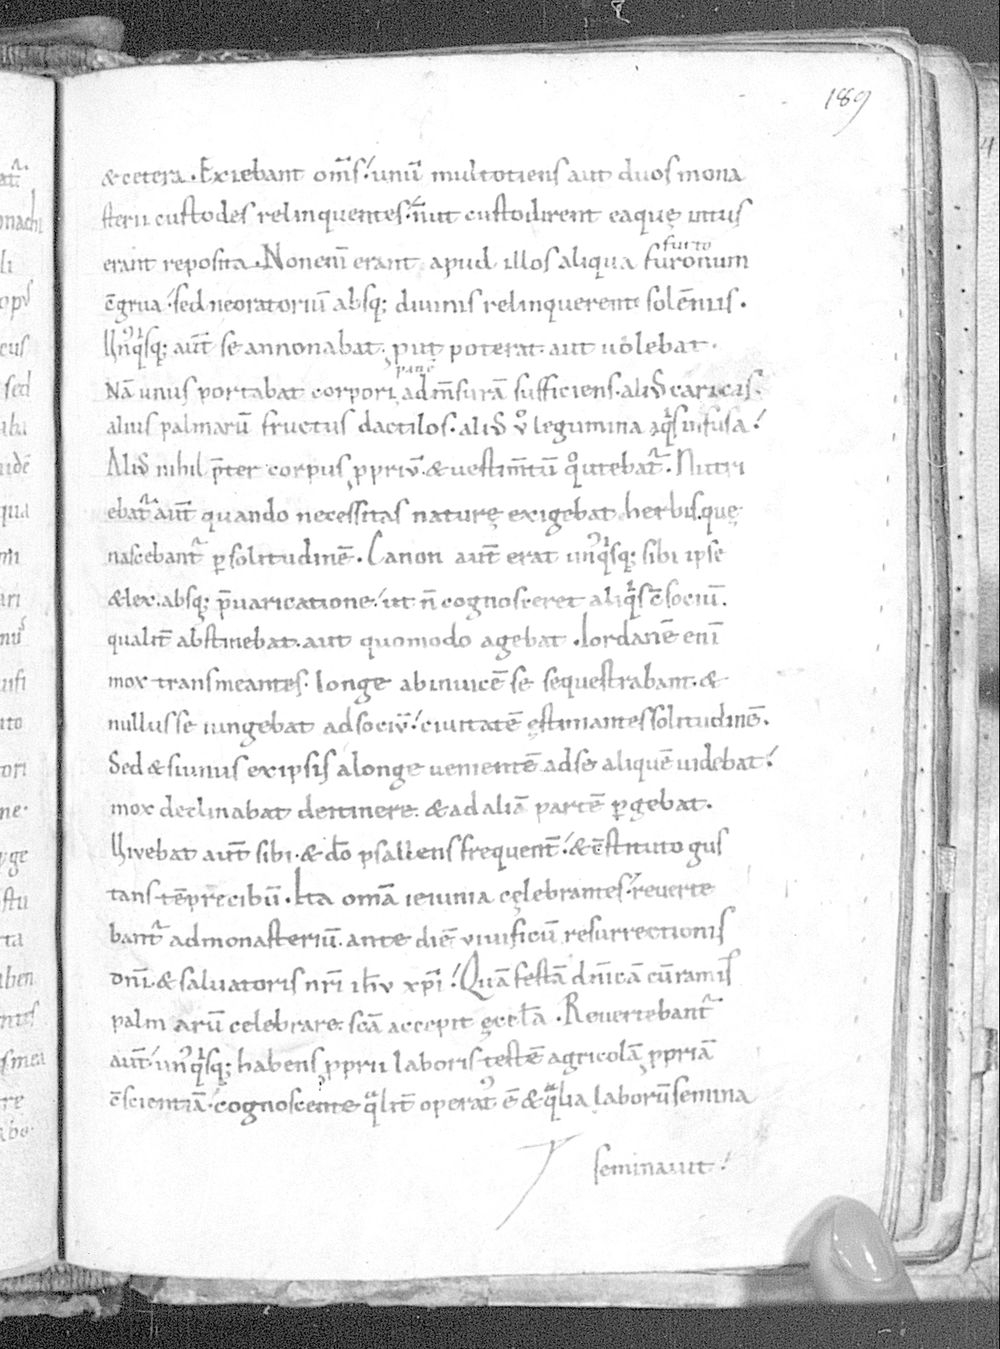 189
&cetera. Exiebant om̄s! unū multotiens aut duos mona
sterii custodes relinquentes. n̄ ut custodirent eaque intus
erant reposita. Non enī erant apud illos aliqua furonum
furto
c̄grua! sed ne oratoriū absq; diuinis relinquerent solēniis.
Un'qsq; aut̄ se annonabat. put poterat. aut uolebat.
panē
Nā unus portabat corpori ad m̄surā sufficiens. aliꝰ caricas.
alius palmarū fructus dactilos. aliꝰ v̊ legumina aqs infusa!
Aliꝰ nihil p̄ter corpus ꝓpriū & uestim̄tū quo utebat'. Nutri
ebat' aut̄ quando necessitas naturę exigebat herbis quę
nascebant' ꝑ solitudinē. Canon aut̄ erat un'qsq; sibi ipse
& lex. absq; p̄uaricatione! ut n̄ cognosceret aliqs c̄sociū.
qualit̄ abstinebat. aut quomodo agebat. Iordanē enī
mox transmeantes. longe ab inuicē se sequestrabant. &
nullus se iungebat ad sociū! ciuitatē ęstimantes solitudinē.
Sed & si unus ex ipsis a longe uenientē ad se aliquē uidebat!
mox declinabat de itinere. & ad aliā partē ꝑgebat.
Uivebat aut̄ sibi. & dō psallens frequent̄! & c̄stituto gus
tans tēpre cibū. Ita omā ieiunia celebrantes! reverte
bant' ad monasteriū. ante diē vivificū resurrectionis
dn̄i. & saluatoris nr̄i ih̄v xp̄i! Quā festā dnicā cū ramis
palm arū celebrare. scā accepit ęcclā. Revertebant'
aut̄! un'qsq; habens ꝓprii laboris testē agricolā ꝓpriā
c̄scientiā. cognoscente qalit̄ operat' ē & qalia laborū semina
seminauit!